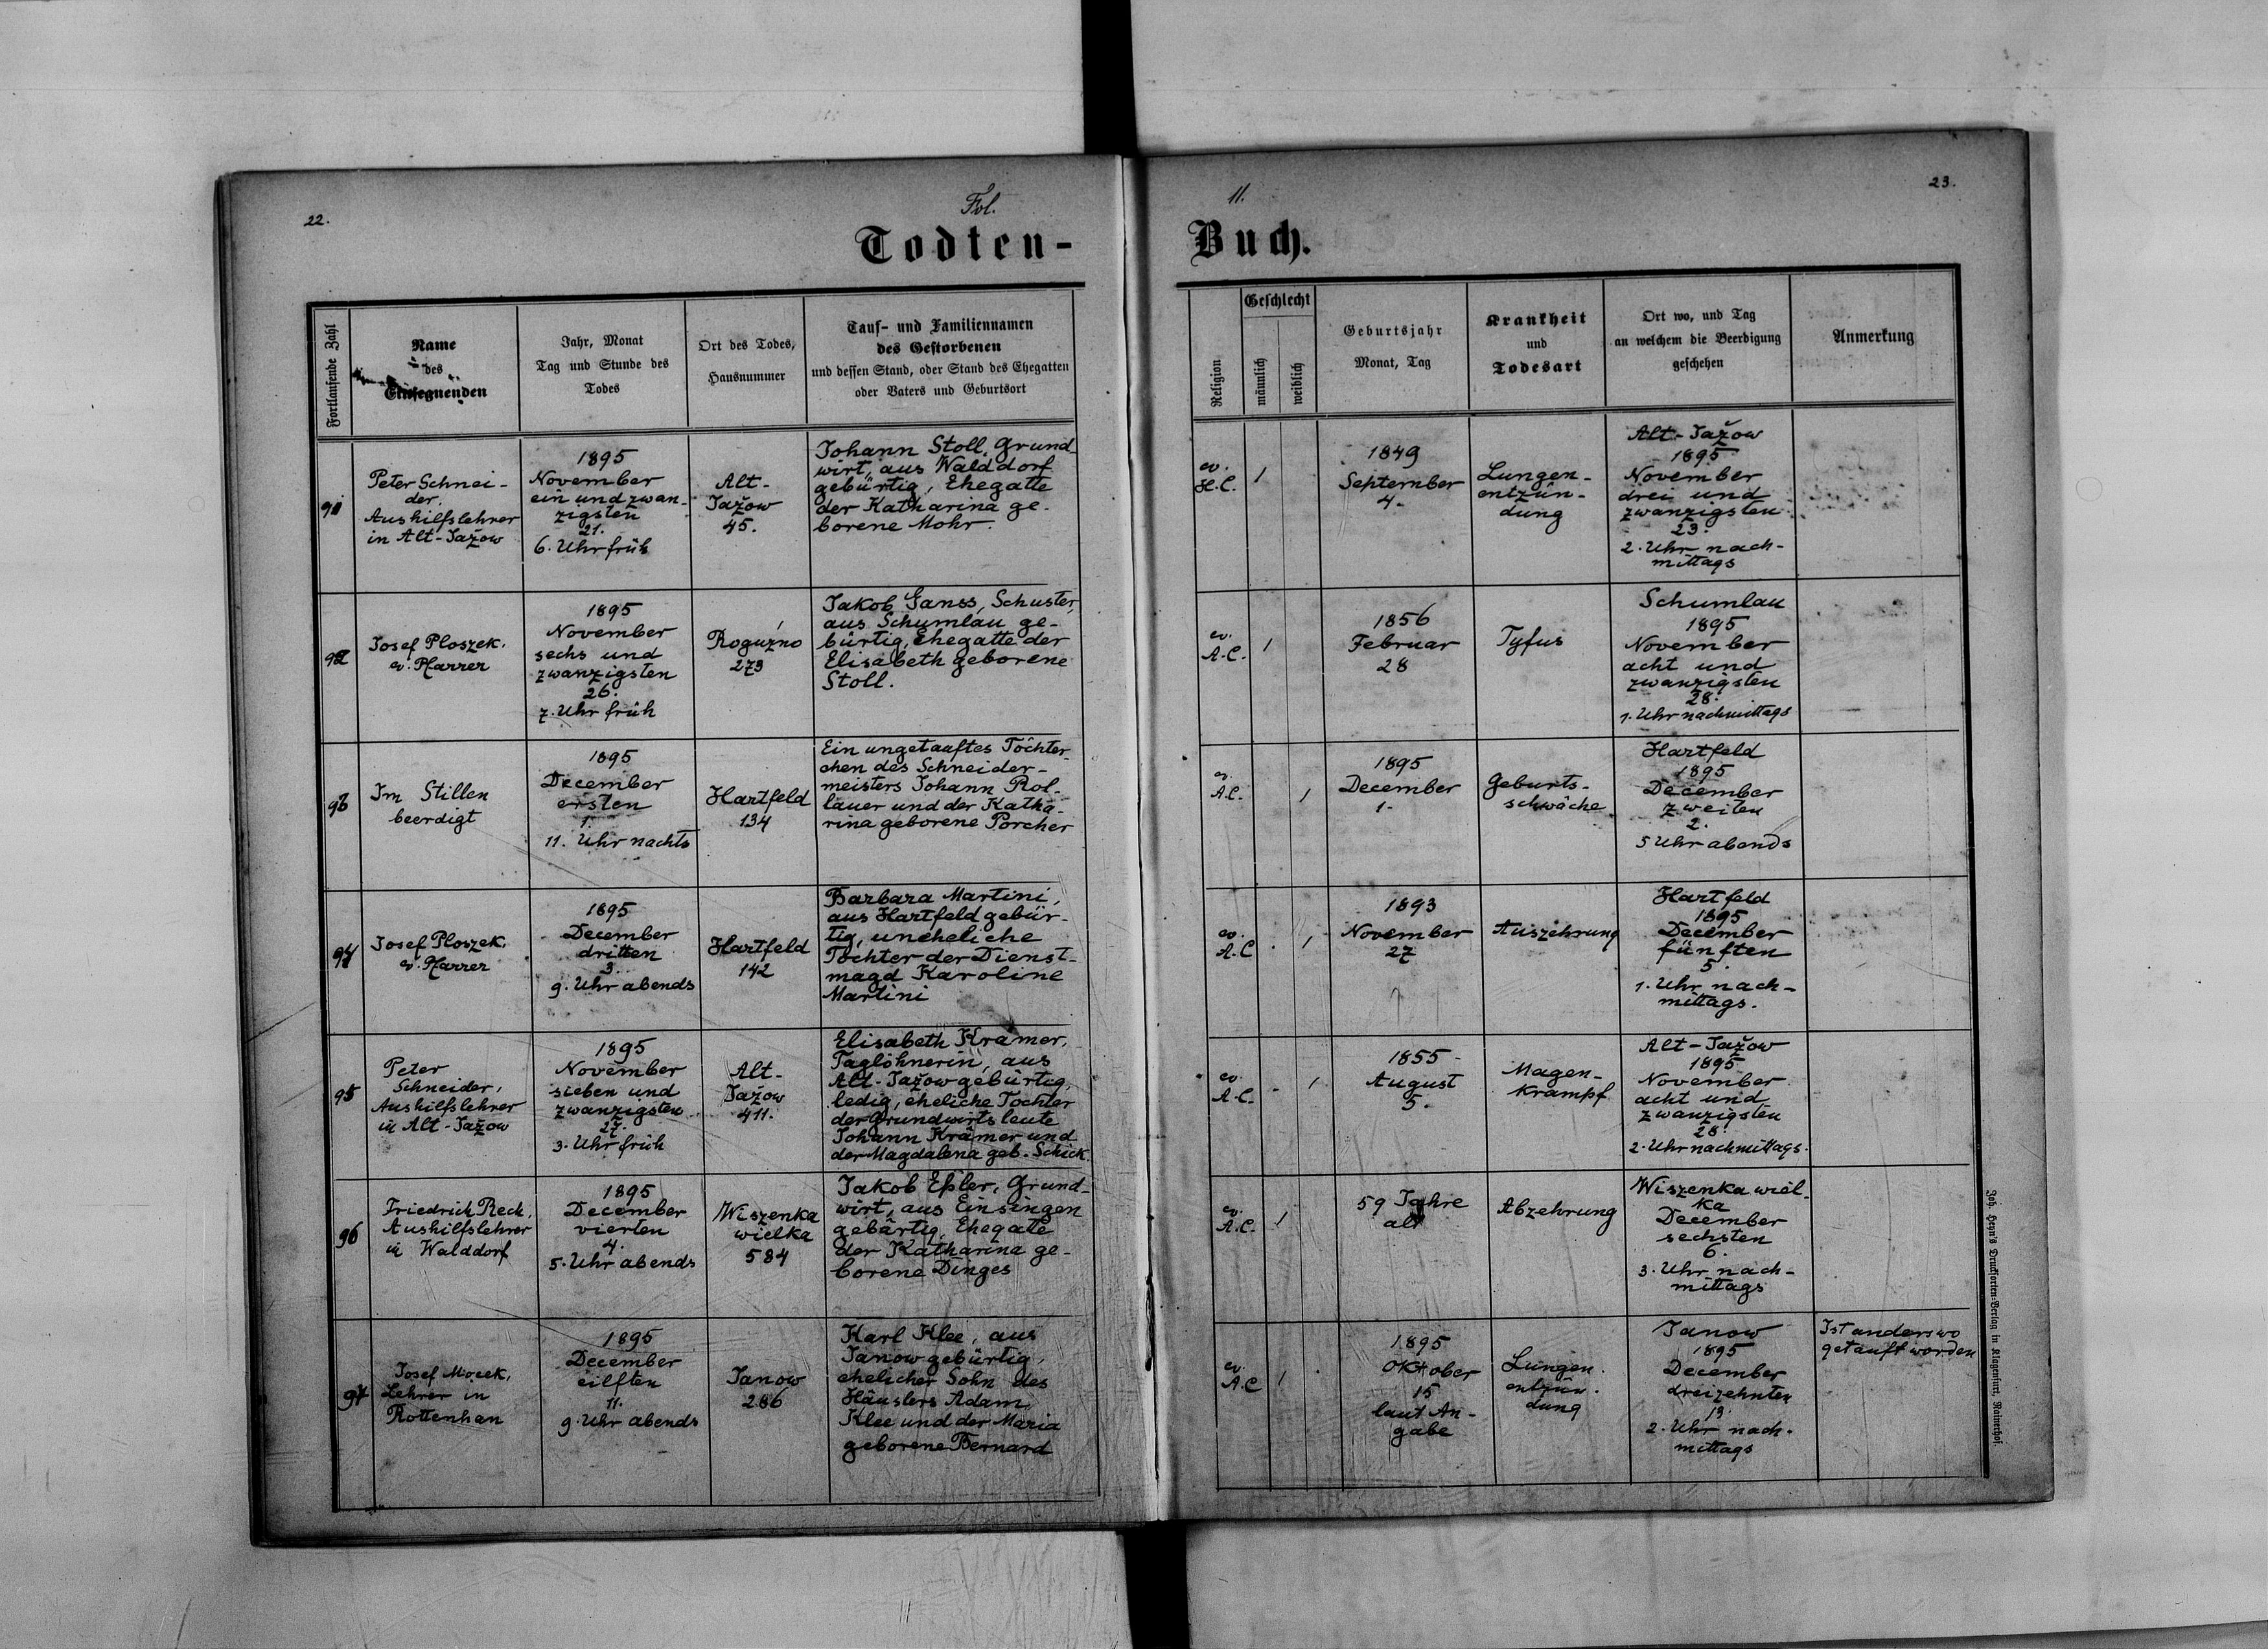 22.
Fol.
11.
23.
Todten-
Buch.
Fortlaufende Zahl
Name
des
Einsegnenden
Jahr, Monat
Tag und Stunde des
Todes
Ort des Todes,
Hausnummer
Tauf- und Familiennamen
des Gestorbenen
und dessen Stand, oder Stand des Ehegatten
oder Vaters und Geburtsort
Religion
Geschlecht
männlich
weiblich
Geburtsjahr
Monat, Tag
Krankheit
und
Todesart
Ort wo, und Tag
an welchem die Beerdigung
geschehen
Anmerkung
91
Peter Schnei-
der,
Aushilfslehrer
in Alt-Jažow
1895
November
ein und zwan-
zigsten
21.
6. Uhr früh
Alt-
Jažow
45.
Johann Stoll, Grund-
wirt, aus Walddorf
gebürtig, Ehegatte
der Katharina ge-
borene Mohr.
ev.
H.C.
1
1849
September
4.
Lungen-
entzün-
dung
Alt-Jažow
1895
November
drei und
zwanzigsten
23.
2. Uhr nach-
mittags
92
Josef Ploszek,
ev. Pfarrer
1895
November
sechs und
zwanzigsten
26.
7. Uhr früh
Roguźno
273
Jakob Ganss, Schuster,
aus Schumlau ge-
bürtig, Ehegatte der
Elisabeth geborene
Stoll.
ev.
A.C.
1
1856
Februar
28
Tyfus
Schumlau
1895
November
acht und
zwanzigsten
28.
1. Uhr nachmittags
93
Im Stillen
beerdigt
1895
December
ersten
1.
11. Uhr nachts
Hartfeld
134
Ein ungetauftes Töchter-
chen des Schneider-
meisters Johann Rol-
lauer und der Katha-
rina geborene Porcher
ev.
A.C.
1
1895
December
1.
Geburts-
schwäche
Hartfeld
1895
December
zweiten
2.
5 Uhr abends
94
Josef Ploszek,
ev. Pfarrer
1895
December
dritten
3.
9. Uhr abends
Hartfeld
142
Barbara Martini,
aus Hartfeld gebür-
tig, uneheliche
Tochter der Dienst-
magd Karoline
Martini
ev.
A.C
1
1893
November
27
Auszehrung
Hartfeld
1895
December
fünften
5.
1. Uhr nach-
mittags.
95
Peter
Schneider,
Aushilfslehrer
in Alt-Jažow
1895
November
sieben und
zwanzigsten
27.
3. Uhr früh
Alt-
Jažow
411.
Elisabeth Kramer,
Taglöhnerin, aus
Alt-Jažow gebürtig,
ledig, eheliche Tochter
der Grundwirtsleute
Johann Krämer und
der Magdalena geb. Schick.
ev.
A.C.
1
1855
August
5.
Magen-
krampf
Alt-Jažow
1895
November
acht und
zwanzigsten
28.
2. Uhr nachmittags.
96
Friedrich Reck,
Aushilfslehrer
in Walddorf
1895
December
vierten
4.
5. Uhr abends
Wiszenka
wielka
584
Jakob Eßler, Grund-
wirt, aus Einsingen
gebärtig, Ehegatte
der Katharina ge-
borene Dinges
ev.
A.C.
1
59 Jahre
alt
Abzehrung
Wiszenka wiel-
ka
December
sechsten
6.
3. Uhr nach-
mittags
97
Josef Mocek,
Lehrer in
Rottenhan
1895
December
eilften
11.
9. Uhr abends
Janow
286
Karl Klee, aus
Janow gebürtig,
ehelicher Sohn des
Häuslers Adam
Klee und der Maria
geborene Bernard
ev.
A.C
1
1895
Oktober
15
laut An-
gabe
Lungen-
entzün-
dung
Janow
1895
December
dreizehnten
13.
2. Uhr nach-
mittags
Ist anderswo
getauft worden
Joh. Heyn's Drucksorten-Verlag in Klagenfurt, Rainerhof.